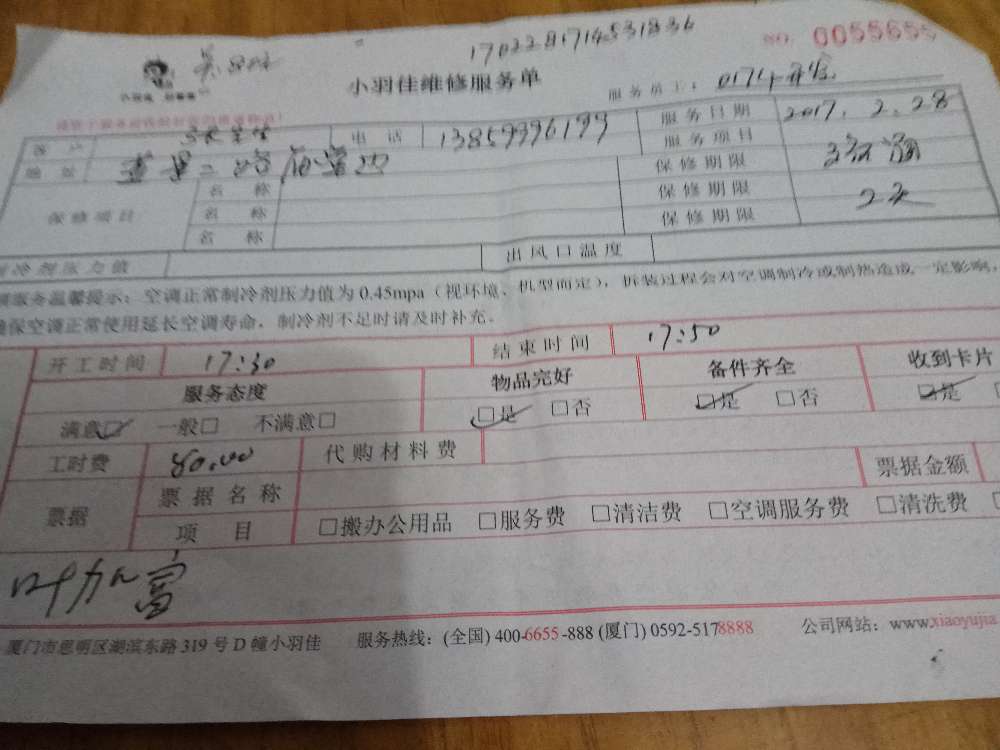 1702281714531836
NO. 0055655
小羽佳维修服务单
服务员工： 0174
客户 电话 13859996199 服务日期 2017.2.28
地址 服务项目
保修期限
保修项目 名称 保修期限 2天
名称 保修期限
名称
制冷剂压力值 出风口温度
调服务温馨提示：空调正常制冷剂压力值为0.45mpa（视环境、机型而定），拆装过程会对空调制冷或制热造成一定影响，
确保空调正常使用延长空调寿命，制冷剂不足时请及时补充。
开工时间 17:30 结束时间 17:50
服务态度 物品完好 备件齐全 收到卡片
满意☑ 一般□ 不满意□ ☑是 □否 ☑是 □否 ☑是
工时费 80.00 代购材料费
票据 票据名称 票据金额
项目 □搬办公用品 □服务费 □清洁费 □空调服务费 □清洗费
叶加富
厦门市思明区湖滨东路319号D幢小羽佳 服务热线：(全国) 400-6655-888 (厦门) 0592-5178888 公司网站：www.xiaoyujia